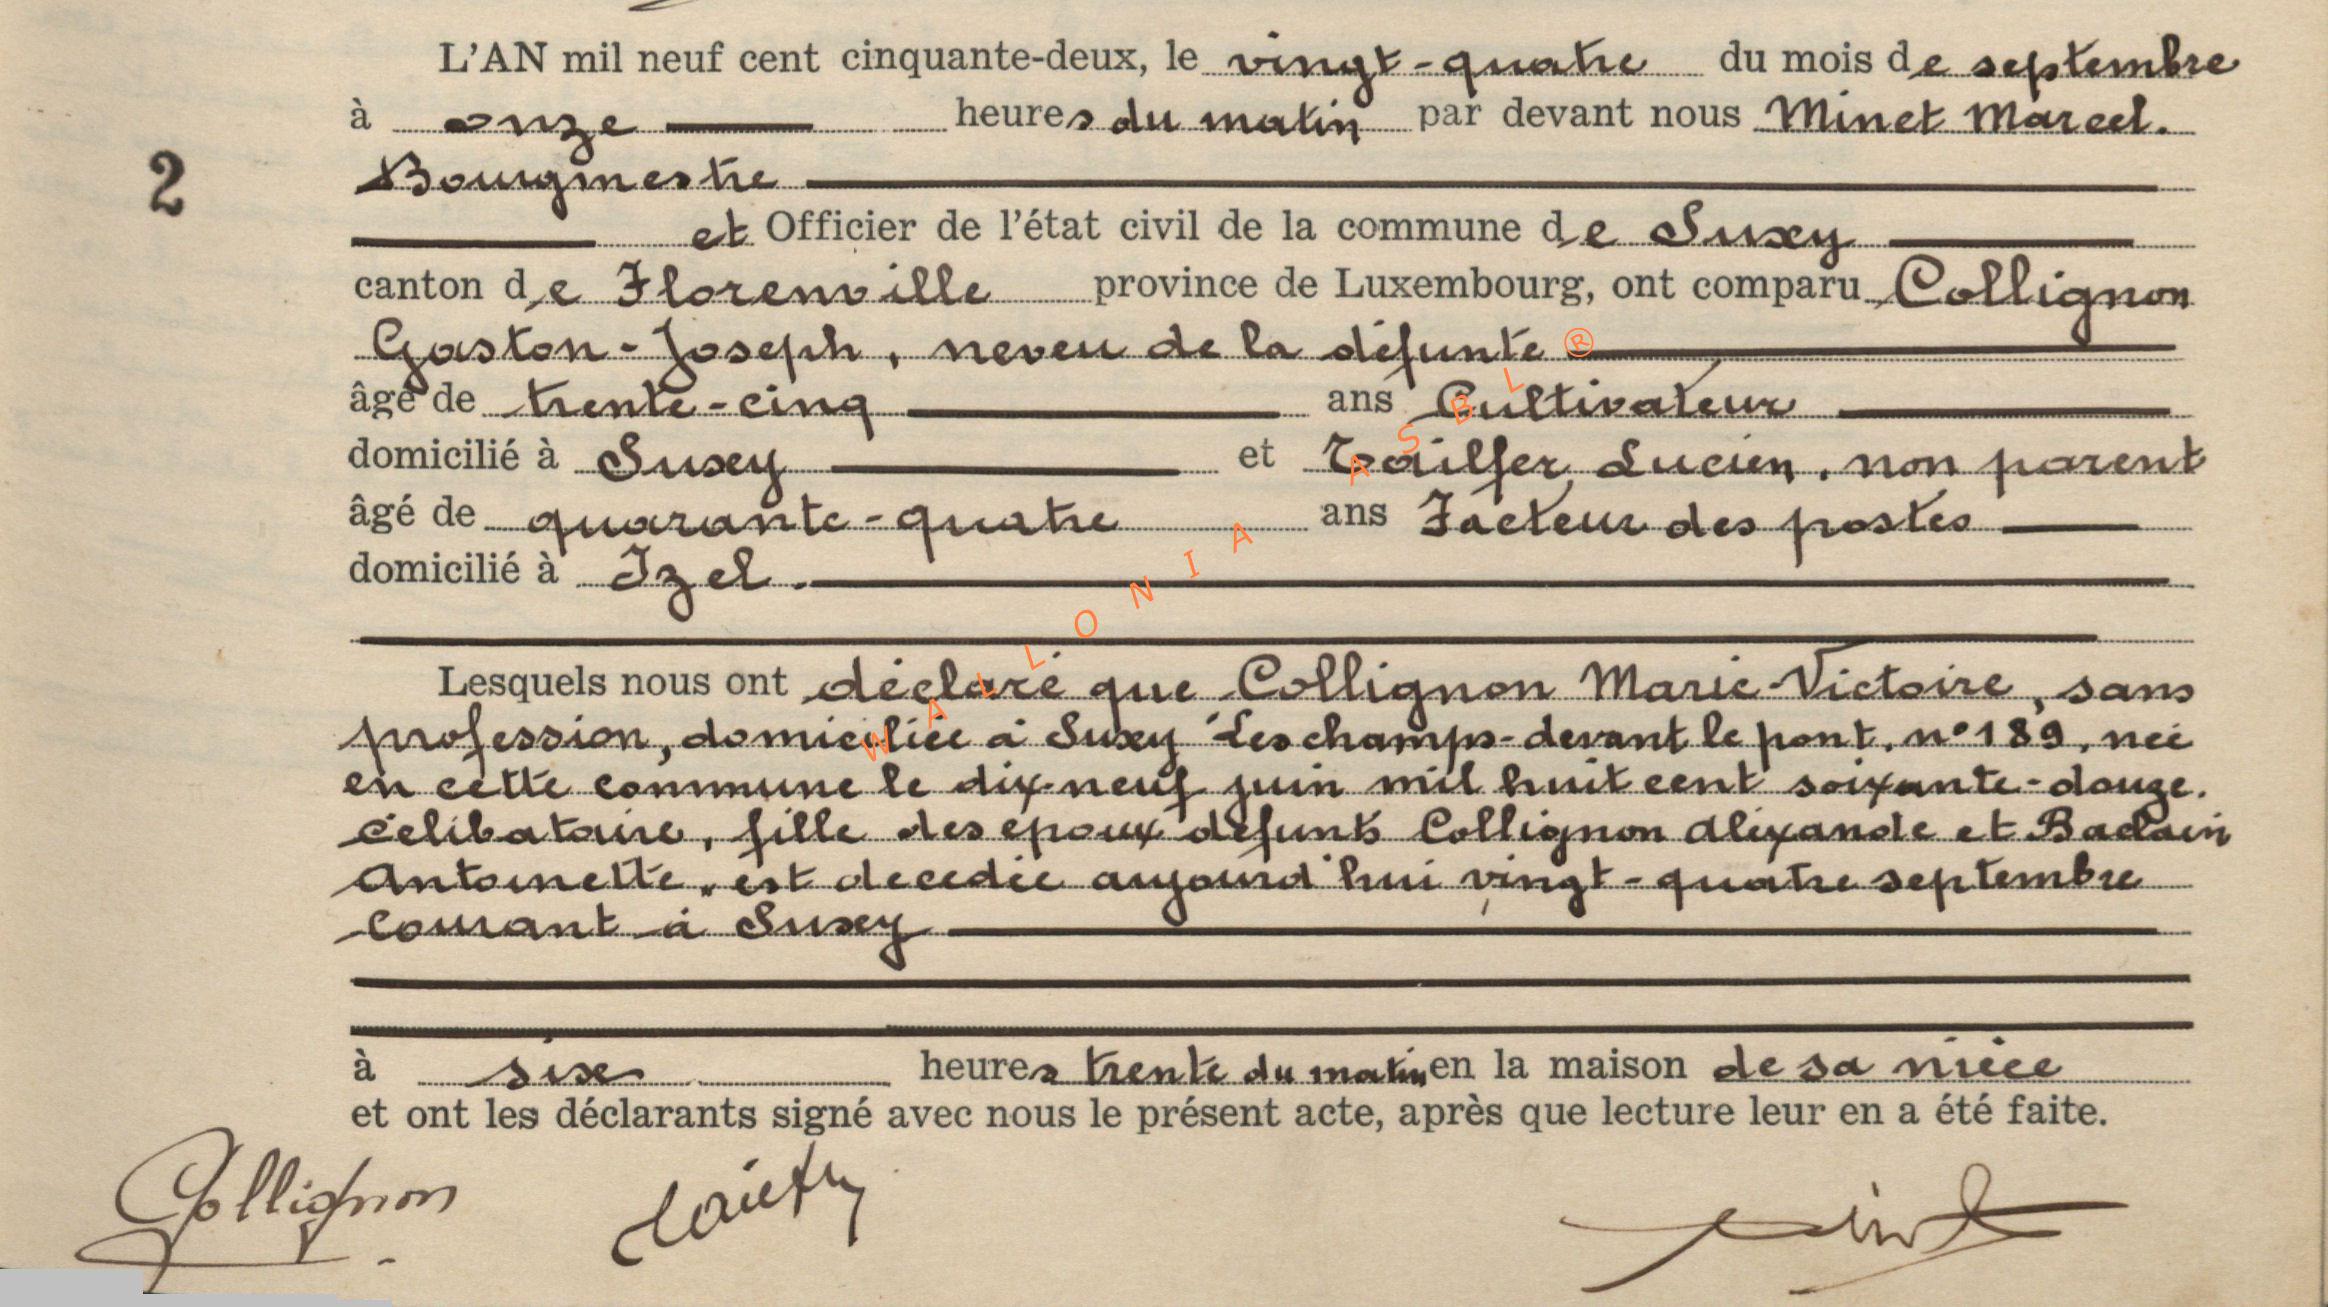 L'AN mil neuf cent cinquante-deux, le vingt-quatre du mois de septembre
à onze heures du matin par devant nous Minet Marcel.
2
Bourgmestre
et Officier de l'état civil de la commune de Suxy
canton de Florenville province de Luxembourg, ont comparu Collignon
Gaston-Joseph, neveu de la défunte ®
âgé de trente-cinq ans Cultivateur
domicilié à Suxy et Tailfer Lucien, non parent
âgé de quarante-quatre ans Facteur des postes
domicilié à Izel.
WALLONIA ASBL
Lesquels nous ont déclaré que Collignon Marie-Victoire, sans
profession, domiciliée à Suxy Les champs-devant le pont, n° 189, née
en cette commune le dix-neuf juin mil huit cent soixante-douze.
célibataire, fille des époux défunts Collignon Alixandre et Baclain
Antoinette, est décédée aujourd'hui vingt-quatre septembre
courant à Suxy
à six heures trente du matin en la maison de sa nièce
et ont les déclarants signé avec nous le présent acte, après que lecture leur en a été faite.
Collignon